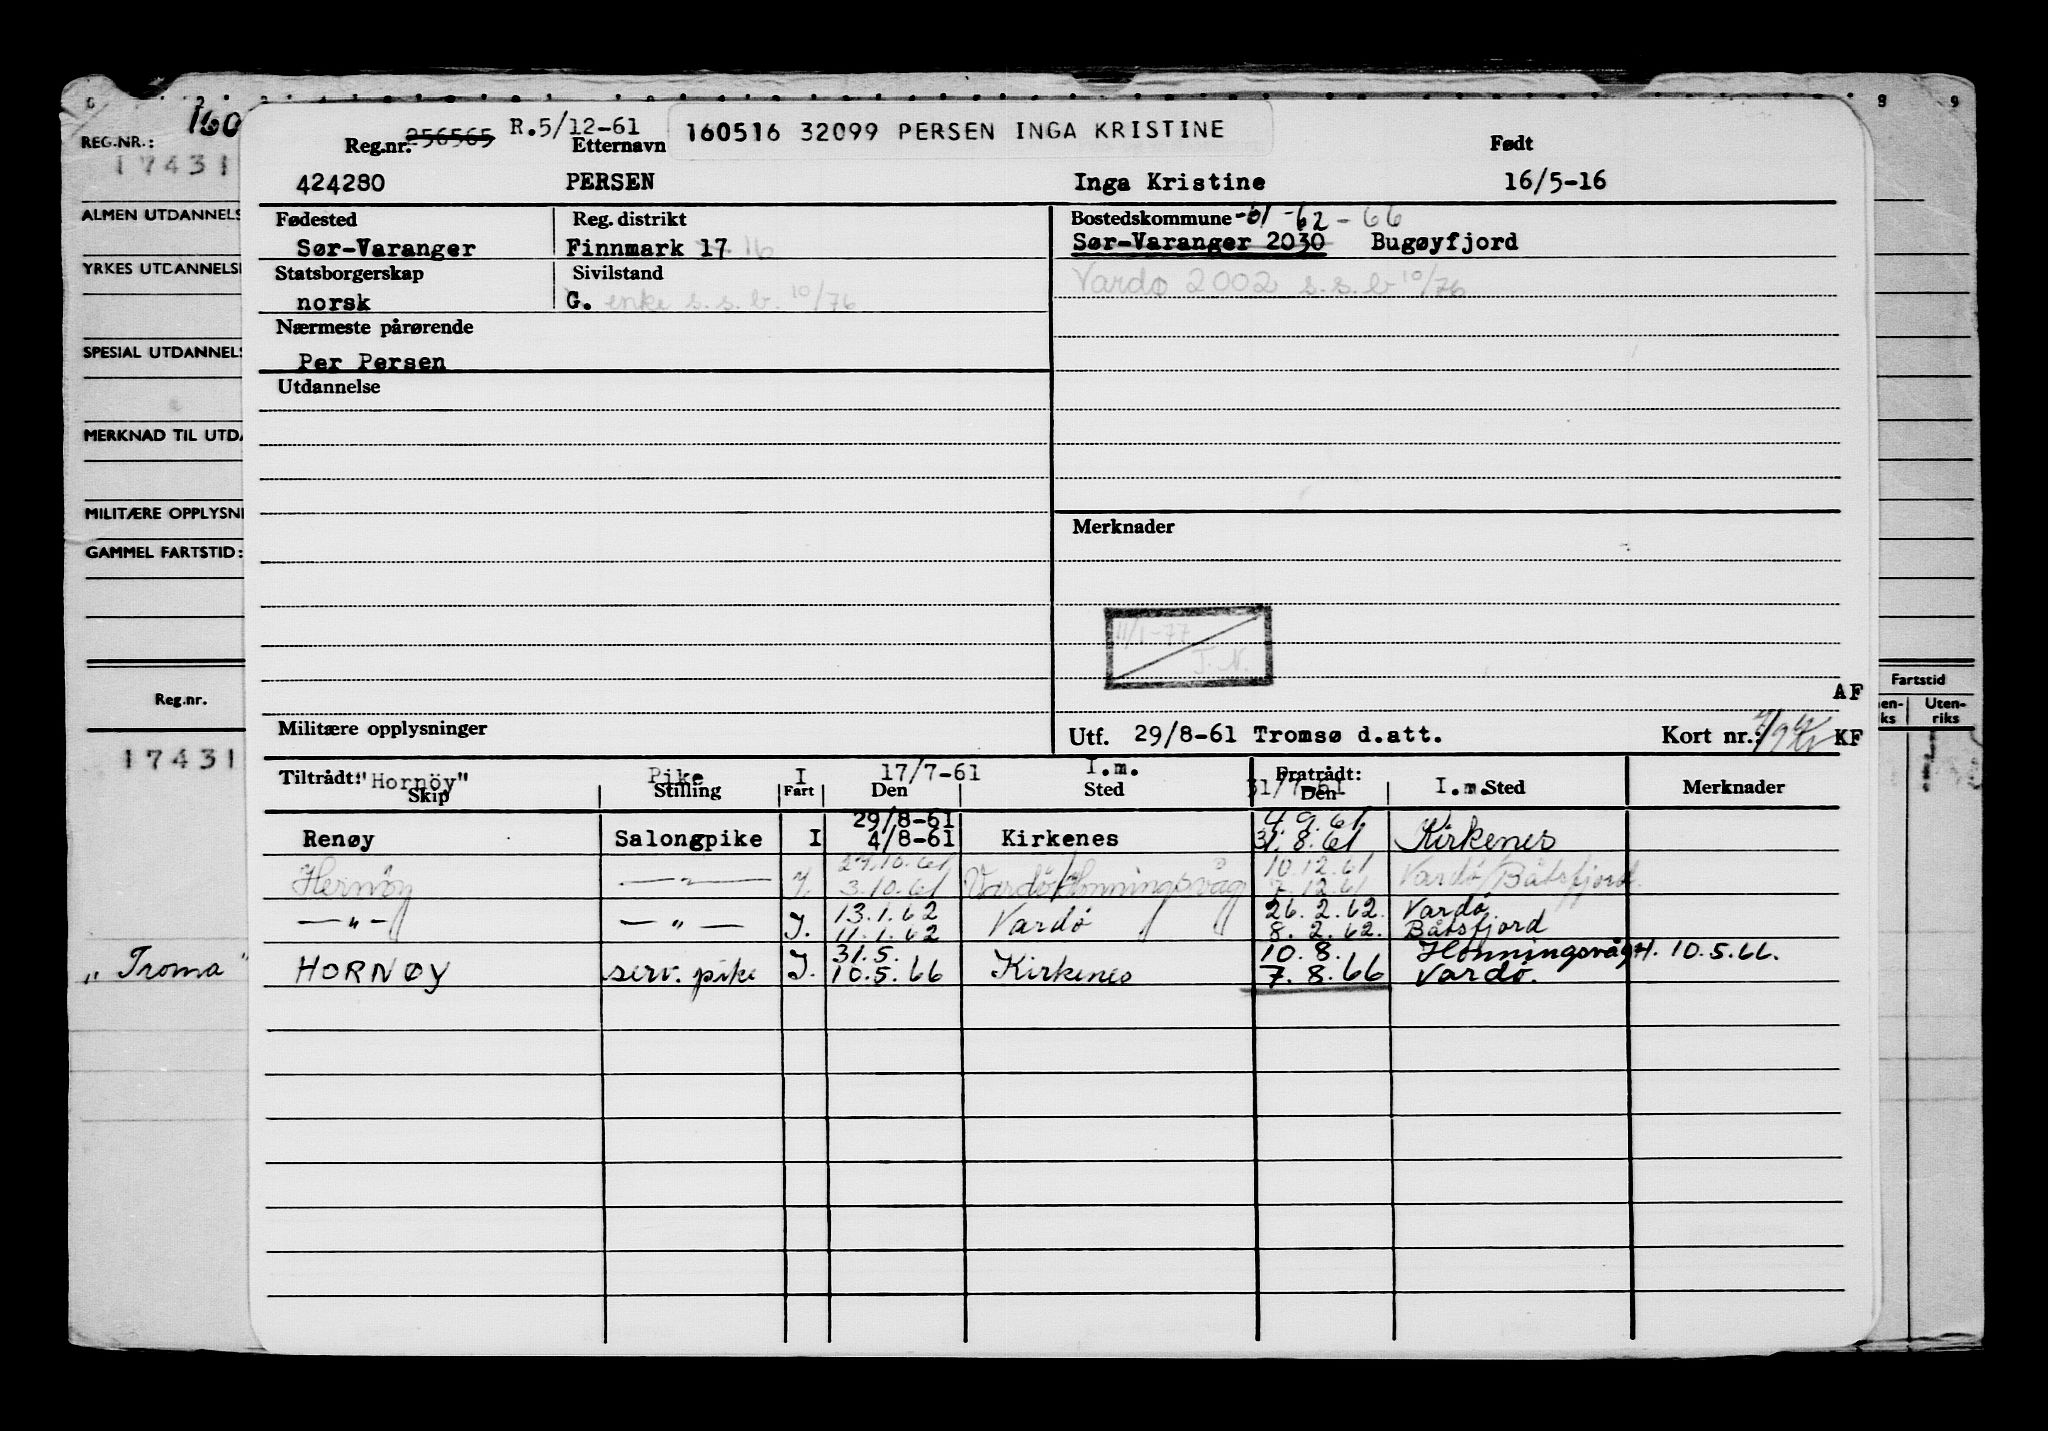 R.5/12-61
160516 32099 PERSEN INGA KRISTINE
Reg.nr. 256565 Etternavn Født
424280 PERSEN Inga Kristine 16/5-16
Fødested Reg. distrikt Bostedskommune -61 -62 - 66
Sør-Varanger Finnmark 17 16 Sør-Varanger 2030 Bugøyfjord
Statsborgerskap Sivilstand Vardø 2002 s.s.b 10/76
norsk G. enke s.s.b. 10/76
Nærmeste pårørende
Per Persen
Utdannelse
Merknader
11/1-77
T.N.
AF
Militære opplysninger Utf. 29/8-61 Tromsø d.att. Kort nr.: KF
Tiltrådt: "Hornöy" Pike I 17/7-61 I.m. Fratrådt: 31/7-61 I.m.
Skip Stilling Fart Den Sted Den Sted Merknader
29/8-61 4.9.61
Renøy Salongpike I 4/8-61 Kirkenes 31.8.61 Kirkenes
27.10.61 10.12.61
Hernöy — " — I. 3.10.61 Vardö/Honningsvåg 7.12.61 Vardö/Båtsfjord.
13.1.62 26.2.62. Vardö
— " — — " — I. 11.1.62 Vardö 8.2.62. Båtsfjord
31.5. 10.8. Honningsvåg H. 10.5.66.
HORNØY serv. pike I. 10.5.66 Kirkenes 7.8.66 Vardö.
160
REG.NR.:
17431
ALMEN UTDANNELS
YRKES UTDANNELS
SPESIAL UTDANNELS
MERKNAD TIL UTDA
MILITÆRE OPPLYSNI
GAMMEL FARTSTID:
Reg.nr.
17431
"Troma"
9 9
Fartstid
en-
ks
Uten-
riks